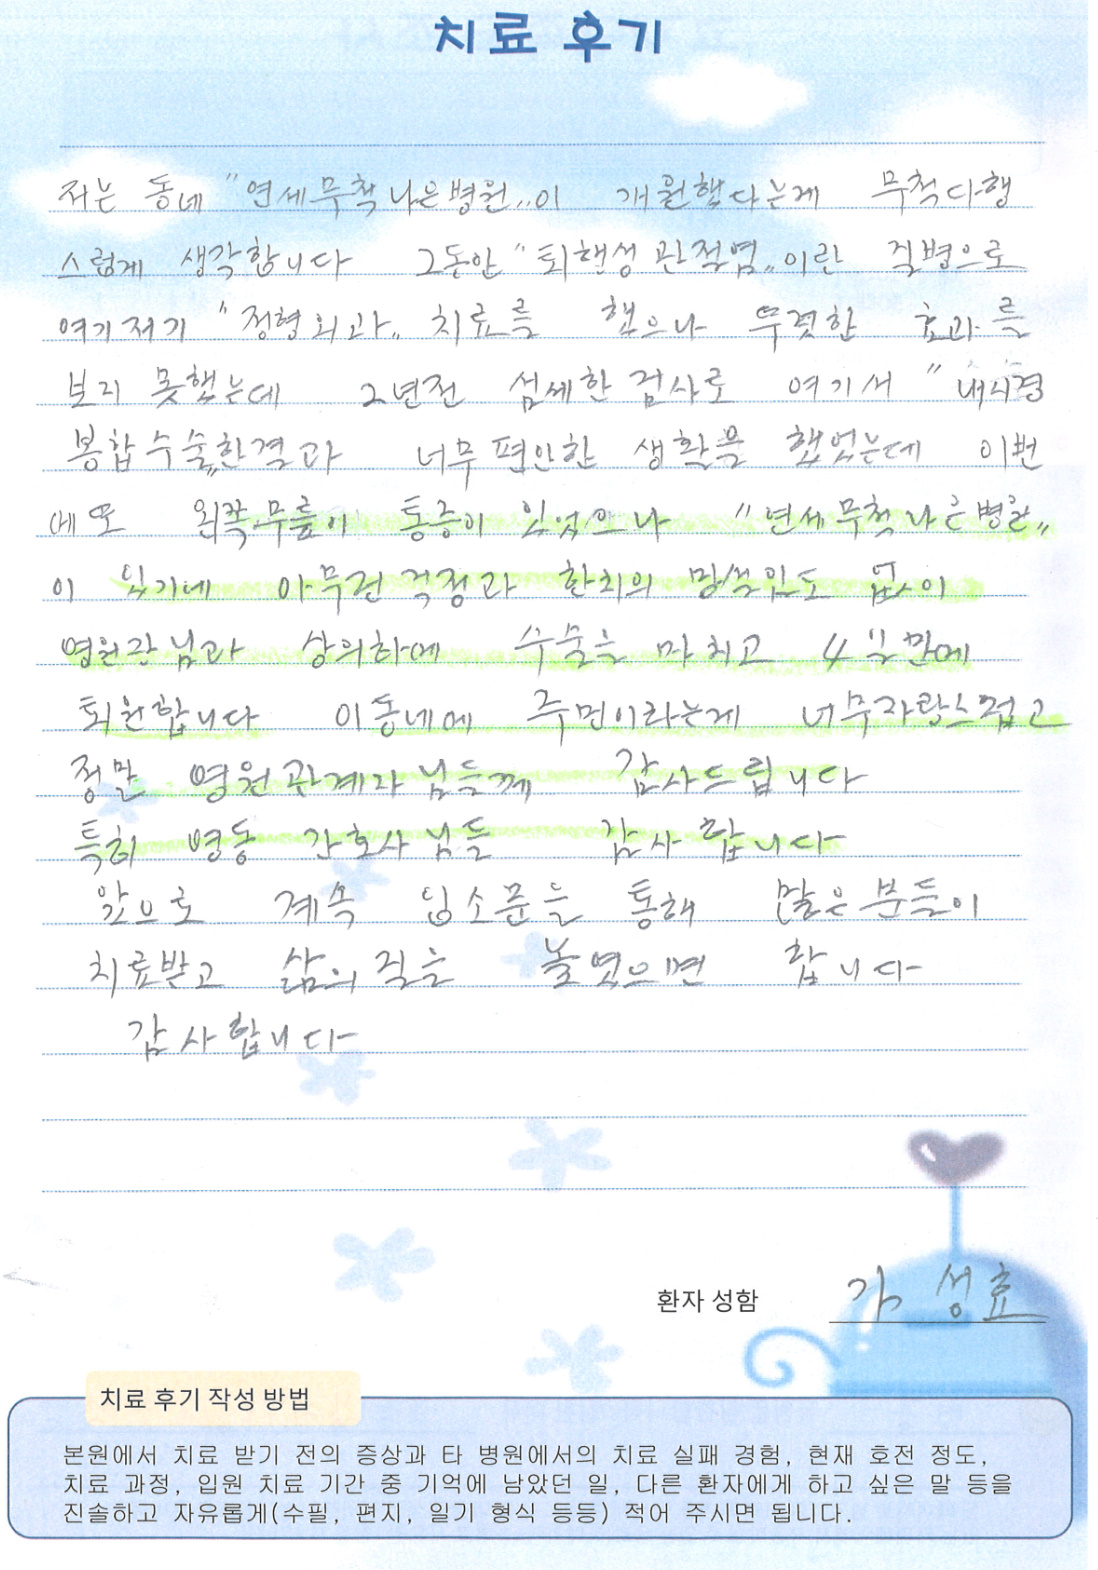 치료 후기
저는 동네 "연세무척나은병원"이 개원했다는게 무척다행
스럽게 생각합니다 그동안 "퇴행성관절염"이란 질병으로
여기저기 "정형외과" 치료를 했으나 뚜렷한 효과를
보지 못했는데 2년전 섬세한 검사로 여기서 "내시경
봉합수술"한결과 너무 편안한 생활을 했었는데 이번
에또 왼쪽무릎이 통증이 있었으나 "연세무척나은병원"
이 있기에 아무런 걱정과 한치의 망설임도 없이
병원장님과 상의하에 수술을 마치고 4일만에
퇴원합니다 이동네에 주민이라는게 너무자랑스럽고
정말 병원관계자님들께 감사드립니다
특히 병동 간호사님들 감사합니다
앞으로 계속 입소문을 통해 많은분들이
치료받고 삶의질을 높였으면 합니다
감사합니다
환자 성함 성효
치료 후기 작성 방법
본원에서 치료 받기 전의 증상과 타 병원에서의 치료 실패 경험, 현재 호전 정도,
치료 과정, 입원 치료 기간 중 기억에 남았던 일, 다른 환자에게 하고 싶은 말 등을
진솔하고 자유롭게(수필, 편지, 일기 형식 등등) 적어 주시면 됩니다.